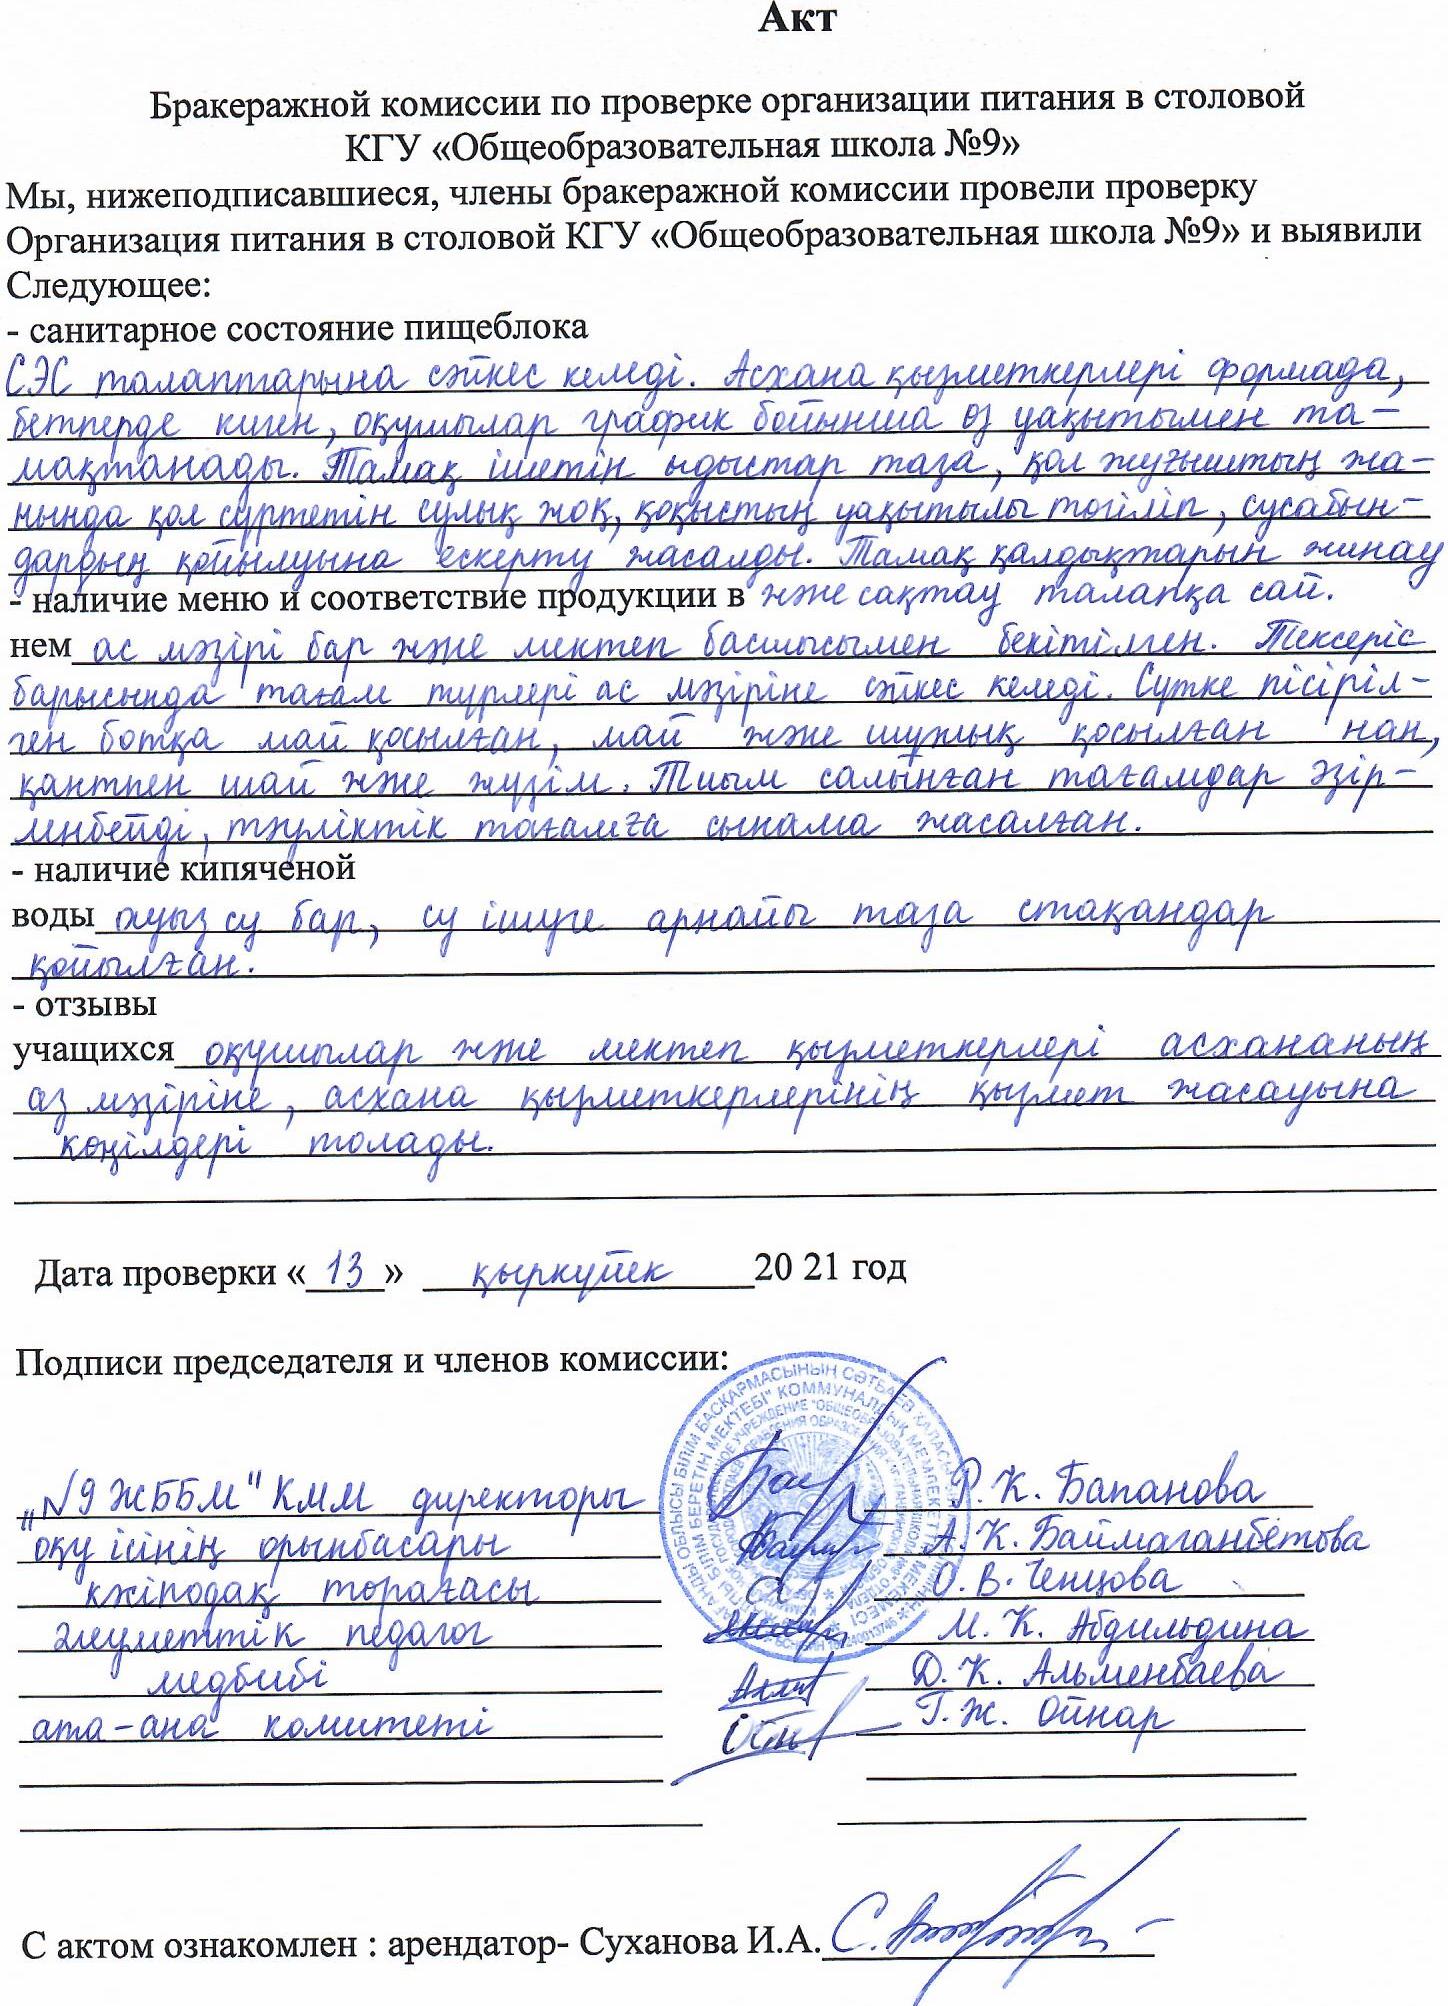 Акт
Бракеражной комиссии по проверке организации питания в столовой
КГУ «Общеобразовательная школа №9»
Мы, нижеподписавшиеся, члены бракеражной комиссии провели проверку
Организация питания в столовой КГУ «Общеобразовательная школа №9» и выявили
Следующее:
- санитарное состояние пищеблока
СЭС талаптарына сәйкес келеді. Асхана қызметкерлері формада,
бетперде киген, оқушылар график бойынша өз уақытымен та-
мақтанады. Тамақ ішетін ыдыстар таза, қол жуғыштың жа-
нында қол сүртетін сулық жоқ, қоқыстың уақытылы төгіліп, сусабын-
дардың қойылуына ескерту жасалды. Тамақ қалдықтарын жинау
- наличие меню и соответствие продукции в және сақтау талапқа сай.
нем ас мәзірі бар және мектеп басшысымен бекітілген. Тексеріс
барысында тағам түрлері ас мәзіріне сәйкес келеді. Сүтке пісіріл-
ген ботқа май қосылған, май және шұжық қосылған нан,
қантпен шай және жүзім. Тиым салынған тағамдар әзір-
ленбейді, тәуліктік тағамға сынама жасалған.
- наличие кипяченой
воды ауыз су бар, су ішуге арнайы таза стақандар
қойылған.
- отзывы
учащихся оқушылар және мектеп қызметкерлері асхананың
аз мәзіріне, асхана қызметкерлерінің қызмет жасауына
көңілдері толады.
Дата проверки «13» қыркүйек 20 21 год
Подписи председателя и членов комиссии:
„N9 ЖББМ" КММ директоры Р.К. Бапанова
оқу ісінің орынбасары А.К. Баймаганбетова
кәсіподақ төрағасы О.В. Ченцова
әлеуметтік педагог М.К. Абдильдина
медбибі Д.К. Альменбаева
ата-ана комитеті Г.Ж. Ойнар
С актом ознакомлен : арендатор- Суханова И.А.